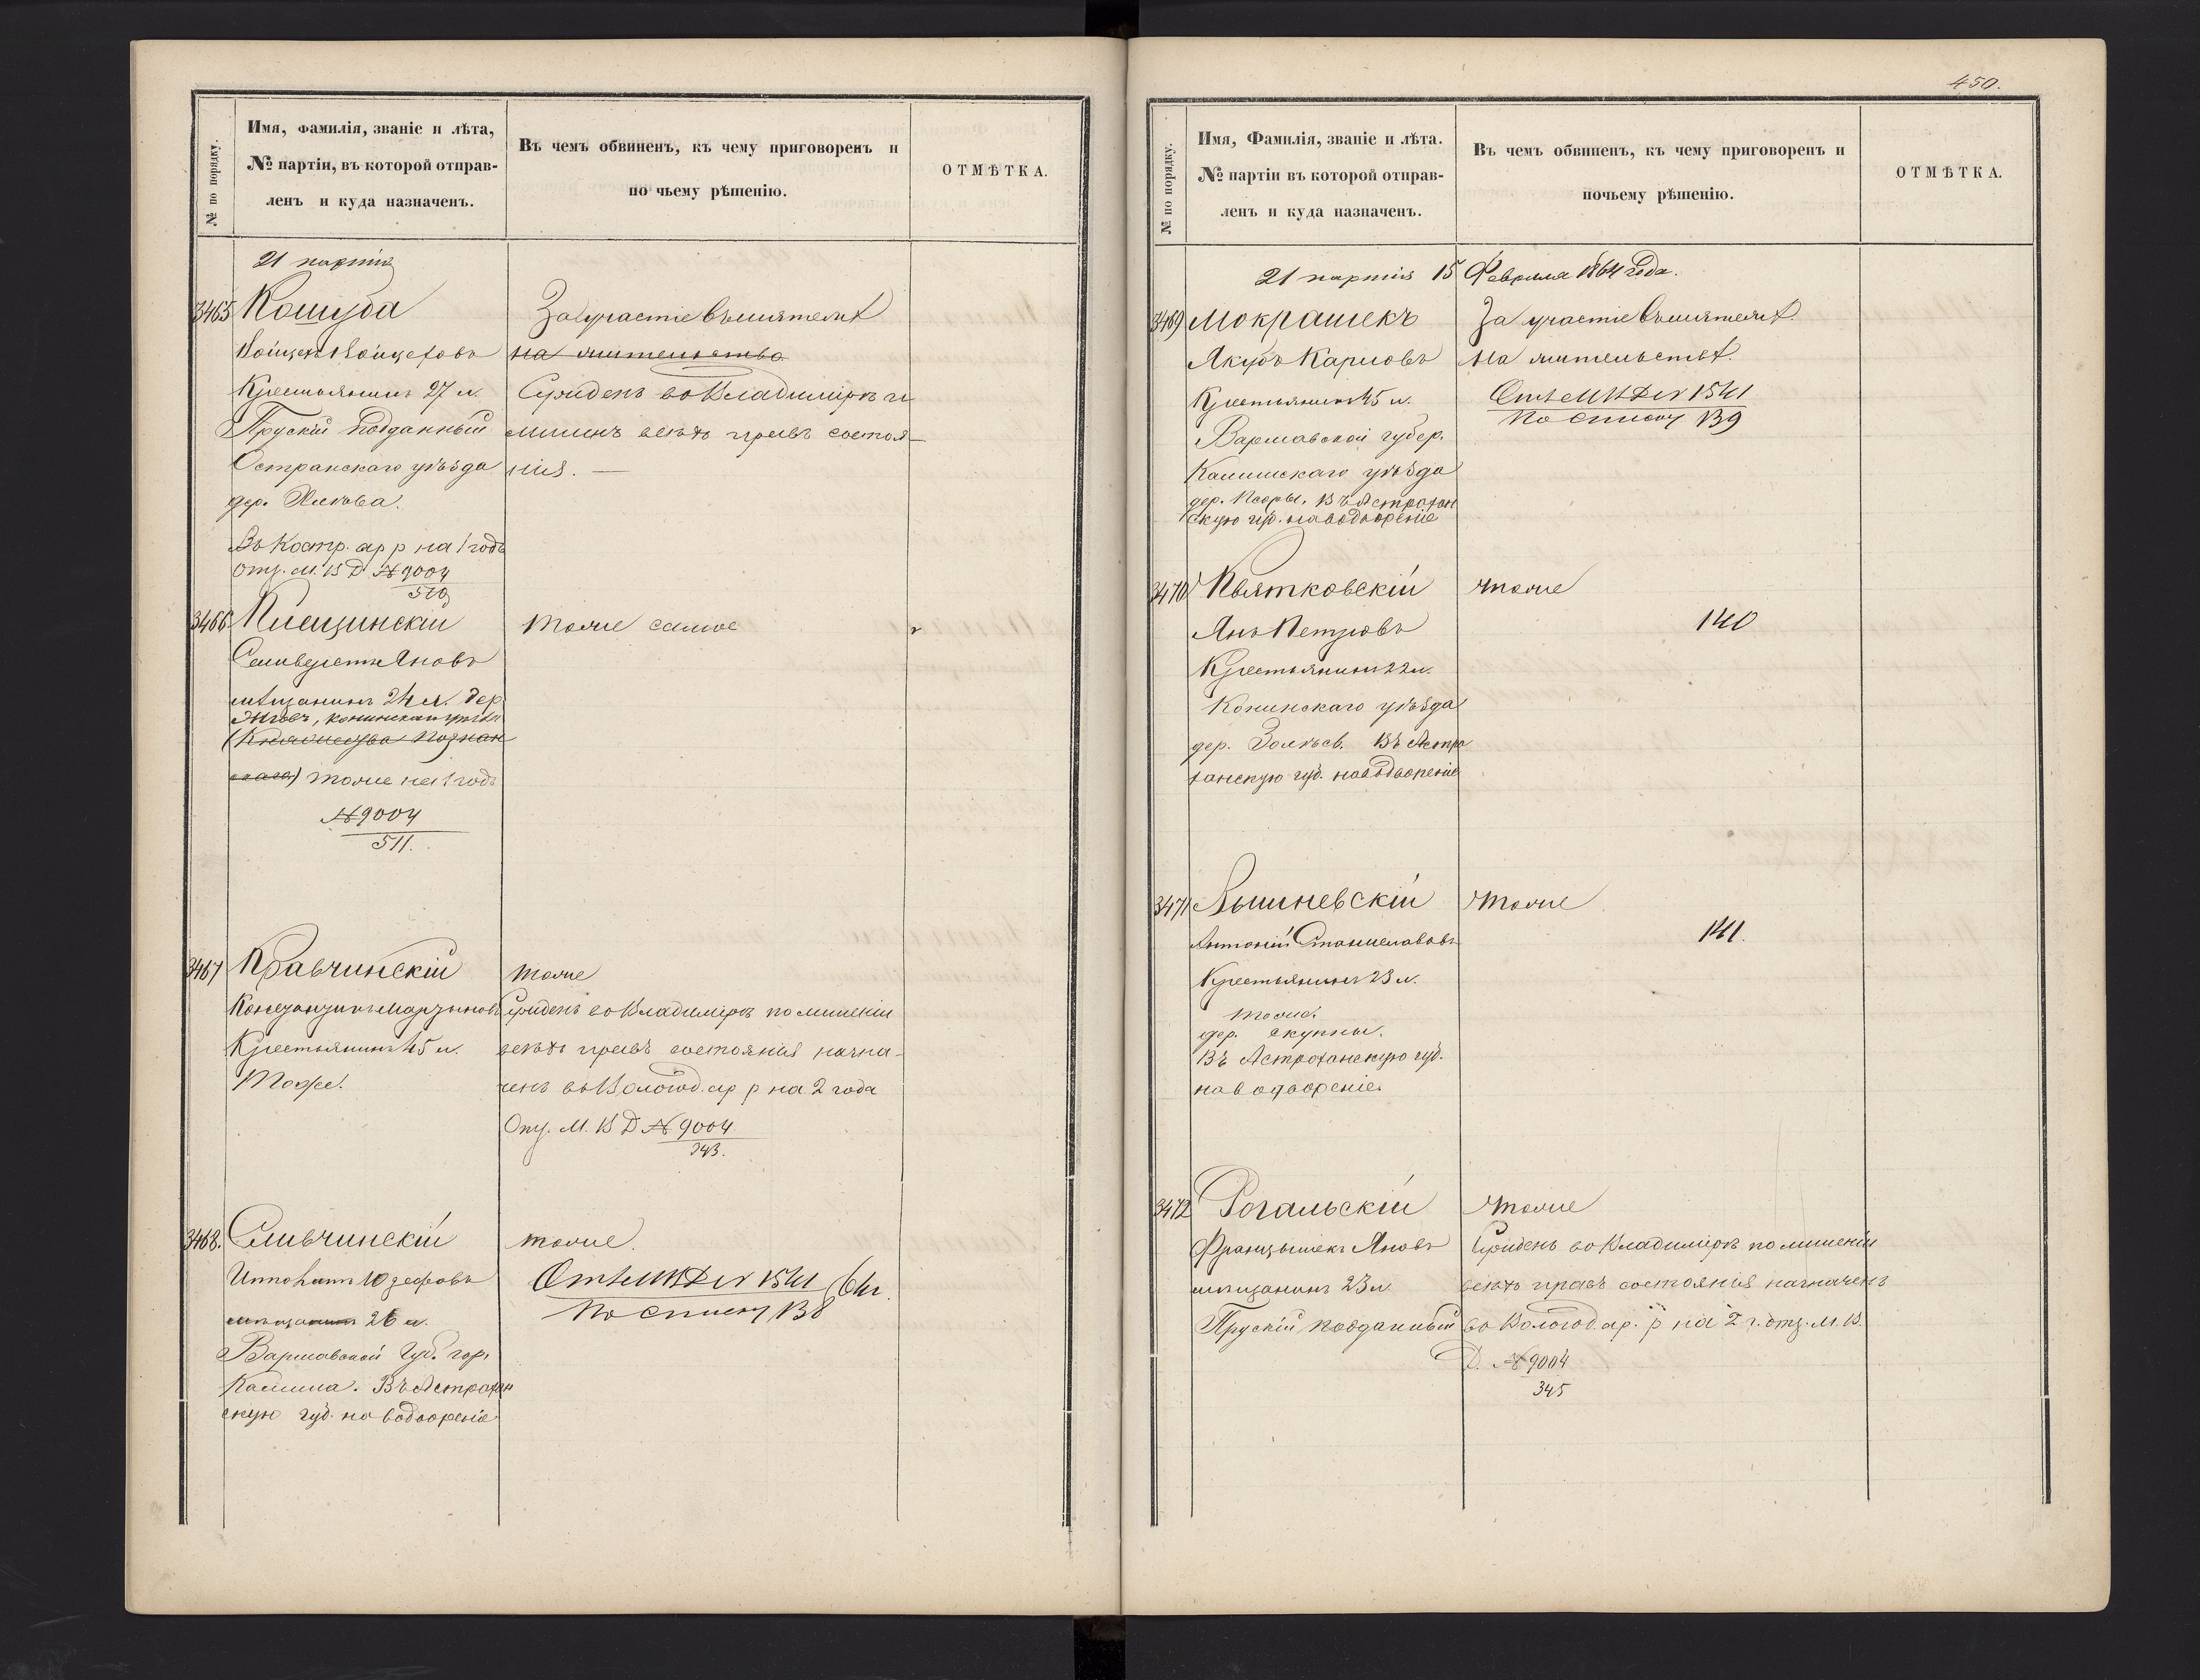 № по порядку.
Имя, фамилія, званіе и лѣта,
№ партіи, въ которой отправ-
ленъ и куда назначенъ.
Въ чемъ обвиненъ, къ чему приговоренъ и
по чьему рѣшенію.
ОТМѢТКА.
21 партія
3465
Кошуба
Войцехъ Войцеховъ
Крестьянинъ 27 л.
Прускій подданный
Остранскаго уѣзда
дер.
Въ Костр. ар р на 1 годъ
Отн. М. В Д № 9004
510
За участіе въ мятежѣ
на жительство
Сужденъ во Владимірѣ и
лишенъ всѣхъ правъ состоя-
нія. —
3466
Яновъ
мѣщанинъ 24 л. дер.
конинскаго уѣзда
(Княжества Познан
скаго) тоже на 1 годъ
№ 9004
511.
тоже самое
3467
Кравчинскій
Крестьянинъ 45 л.
Тоже.
тоже
Сужденъ во Владимірѣ по лишеніи
всѣхъ правъ состоянія назна-
ченъ въ Вологод. ар р на 2 года
Отн. М. В Д № 9004
343.
3468.
Сливчинскій
Юзефовъ
мѣщанинъ 26 л.
Варшавской Губ. гор.
Калиша. Въ Астрахан
скую губ. на водвореніе
тоже.
Отн. МВД 1541
По списку 138
450.
№ по порядку.
Имя, Фамилія, званіе и лѣта.
№ партіи въ которой отправ-
ленъ и куда назначенъ.
Въ чемъ обвиненъ, къ чему приговоренъ и
почьему рѣшенію.
ОТМѢТКА.
21 партія 15 Февраля 1864 года.
3469
Мокрашекъ
Якубъ Карловъ
Крестьянинъ 45 л.
Варшавской губер.
Калишскаго уѣзда
дер. Въ Астрахан
скую губ. на водвореніе
За участіе въ мятежѣ.
на жительствѣ.
1541
По списку 139
3470
Квятковскій
Янъ Петровъ
Крестьянинъ 22 л.
Конинскаго уѣзда
дер. Въ Астра
ханскую губ. на водвореніе
тоже
140
3471
Вышневскій
Антоній Станиславовъ
Крестьянинъ 23 л.
тоже.
дер. Скупны.
Въ Астраханскую губ.
на водвореніе.
тоже
141.
3472
Рогальскій
Францышекъ Яновъ
мѣщанинъ 23 л.
Прускій подданный
тоже
Сужденъ во Владимірѣ по лишеніи
всѣхъ правъ состоянія назначенъ
во Вологод. ар. р на 2 г. отн. М. В.
Д. № 9004
345